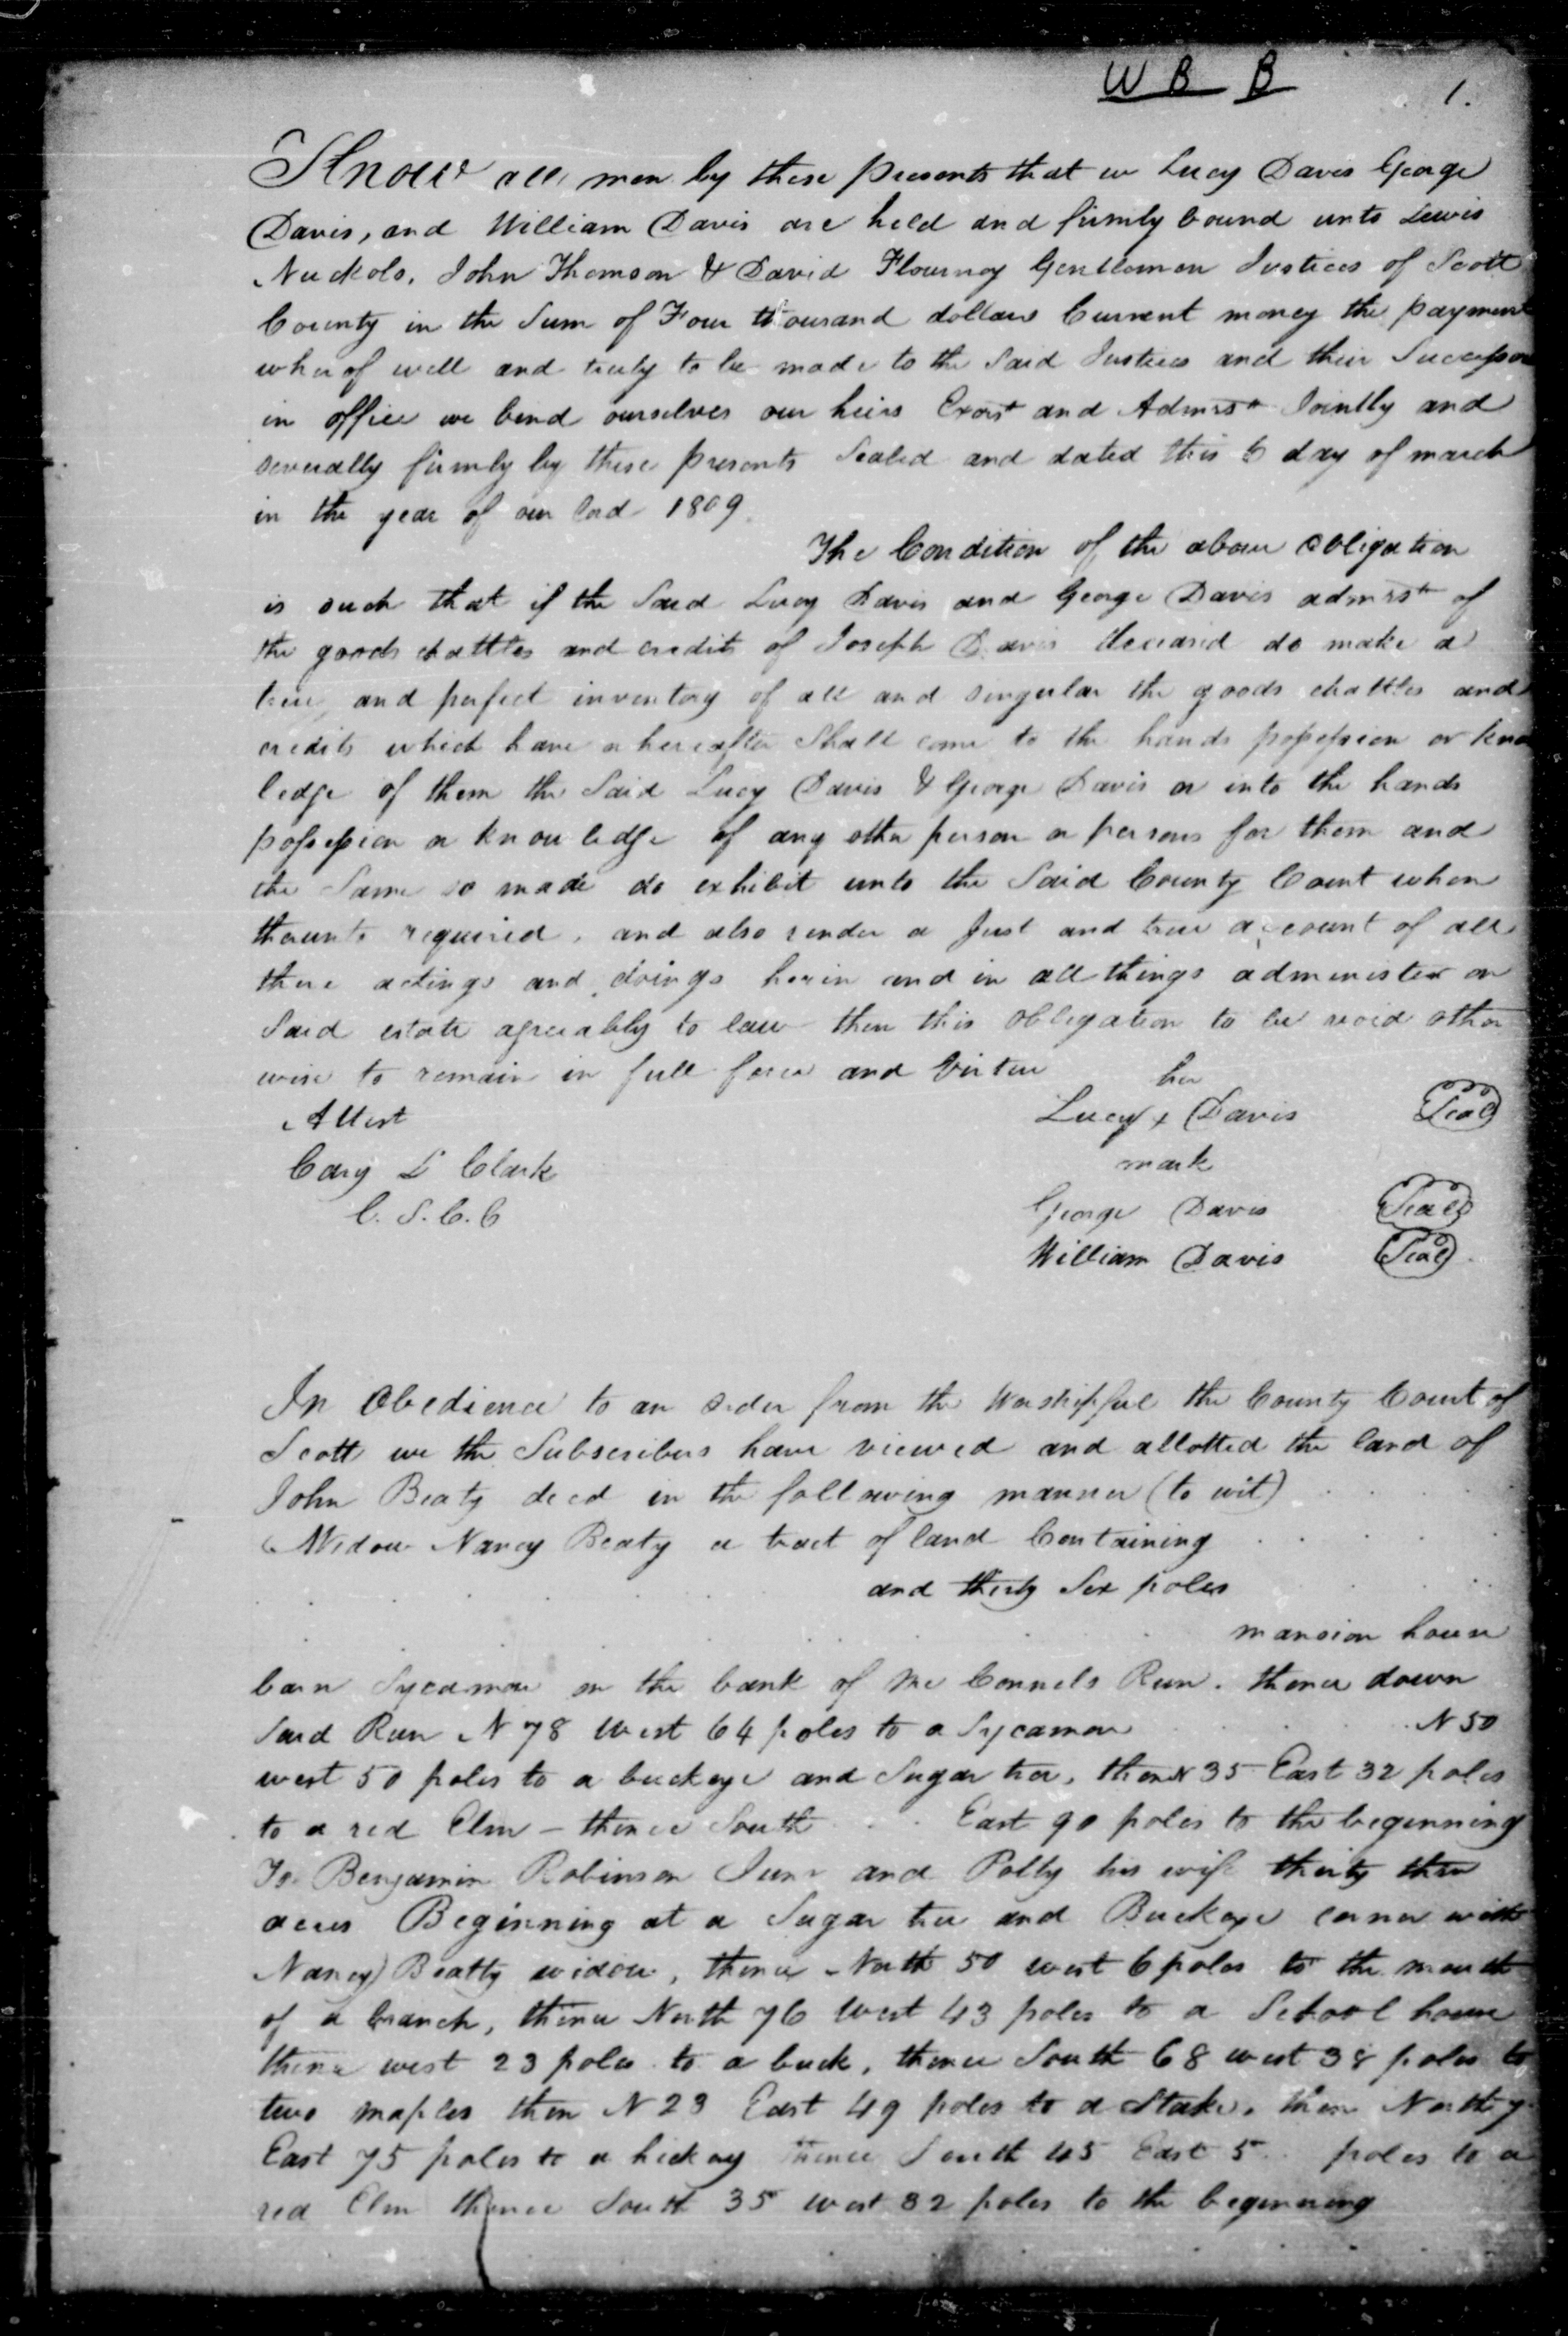 W B B
1.
Know all men by these presents that we Lucy Davis George
Davis, and William Davis are held and firmly bound unto Lewis
Nuckols, John Thomson & David Flournoy Gentlemen Justices of Scott
County in the Sum of Four thousand dollars Current money the payment
wherof well and truly to be made to the Said Justices and their Successor
in office we bind ourselves our heirs Exors and Admrs Jointly and
severally firmly by these presents Sealed and dated this 6 day of march
in the year of our Lord 1809
The Condition of the above obligation
is such that if the Said Lucy Davis and George Davis admrs of
the goods chattles and credits of Joseph Davis deceased do make a
true and perfect inventory of all and singular the goods chattles and
credits which have or hereafter Shall come to the hands possession or know
ledge of them the Said Lucy Davis & George Davis or into the hands
possession or knowledge of any other person or persons for them and
the Same so made do exhibit unto the Said County Court when
thereunto required, and also render a Just and true account of all
there actings and doings herein and in all things administer on
Said estate agreeably to law then this obligation to be void other
wise to remain in full force and Virtue
her
Attest Lucy x Davis Seal
Cary L Clark mark
C. S. C. C George Davis Seal
William Davis Seal
In Obedience to an order from the Worshipful the County Court of
Scott we the Subscribers have viewed and allotted the land of
John Beaty decd in the following manner (to wit)
Widow Nancy Beaty a tract of land Containing
and thirty Six poles
mansion house
barn Sycamore on the bank of Mc Connels Run. thence down
Said Run N 78 West 64 poles to a Sycamore N 50
west 50 poles to a buckeye and Sugar tree, then N 35 East 32 poles
to a red Elm - thence South East 90 poles to the beginning
To Benjamin Robinson Junr and Polly his wife thirty three
acres Beginning at a Sugar tree and Buckeye corner with
Nancy Beatty widow, thence North 50 west 6 poles to the mouth
of a branch, thence North 76 West 43 poles to a School house
thence west 23 poles to a buck, thence South 68 west 38 poles to
two maples then N 23 East 49 poles to a Stake, then North 7
East 75 poles to a hickory thence South 45 East 5 poles to a
red Elm thence South 35 west 32 poles to the beginning